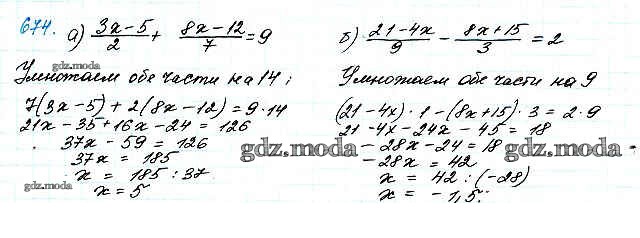 674.
а) (3x-5)/2 + (8x-12)/7 = 9
Умножаем обе части на 14;
7(3x-5) + 2(8x-12) = 9·14
21x - 35 + 16x - 24 = 126
37x - 59 = 126
37x = 185
x = 185 : 37
x = 5
б) (21-4x)/9 - (8x+15)/3 = 2
Умножаем обе части на 9
(21-4x)·1 - (8x+15)·3 = 2·9
21 - 4x - 24x - 45 = 18
-28x - 24 = 18
-28x = 42
x = 42 : (-28)
x = -1,5.
gdz.moda
gdz.moda
gdz.moda
gdz.moda
gdz.moda
gdz.moda